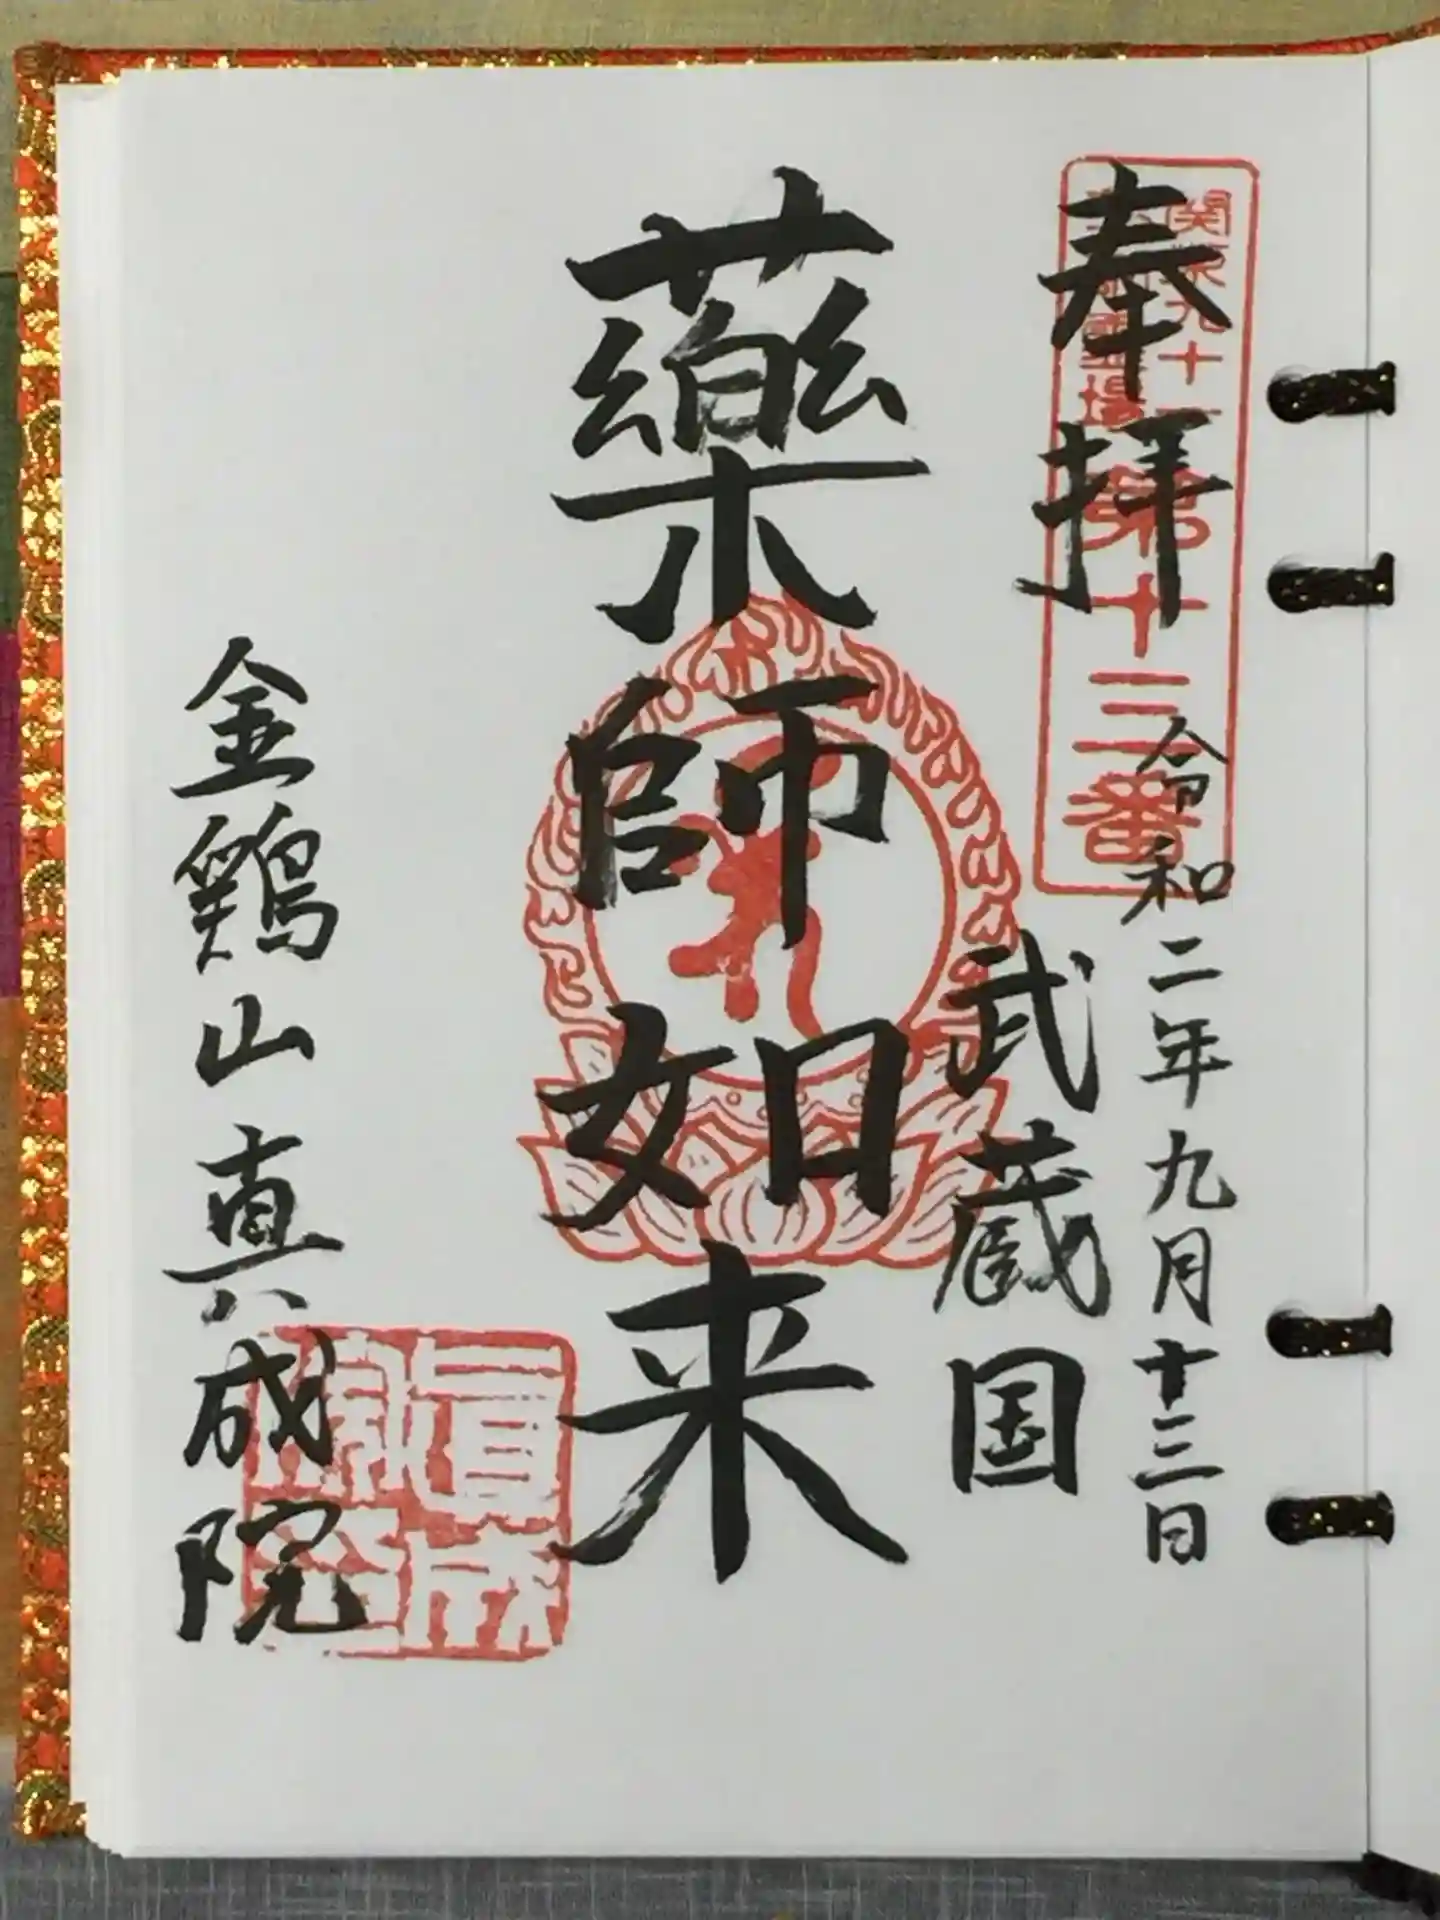 奉拝
関東九十一
薬師霊場
第十三番
令和二年九月十三日
武蔵国
藥師如来
金鶏山真成院